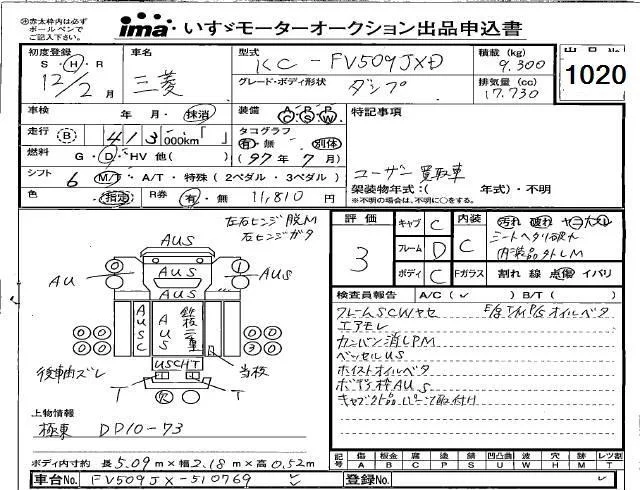 赤太枠内は必ずボールペンでご記入下さい。
ima いすゞモーターオークション出品申込書
初度登録 S・H・R 12/2月
車名 三菱
型式 KC-FV509JXD
積載(kg) 9.300
出品No. 1020
グレード・ボディ形状 ダンプ
排気量(cc) 17.730
車検 年 月・抹消
装備 A P A C S W
特記事項
走行 B 413 000km「 」
タコグラフ 有・無 別体 (97年7月)
燃料 G・D・HV 他( )
シフト 6 M/T・A/T・特殊(2ペダル・3ペダル)
ユーザー買取車
架装物年式:( 年式)・不明
※不明の場合は、不明に○をする。
色 指定 R券 有・無 11,810円
左右ヒンジ脱M
右ヒンジガタ
評価 3
キャブ C
フレーム D
ボディ C
内装 C 汚れ 破れ ヤニ大スレ
シートヘタリ破れ
内装品外しM
Fガラス 割れ 線 点傷 イバリ
AUS
AU AUS AUS
AUS
AUSC AUS 鉄板二重
USCHT
後車軸ズレ T T 当板
検査員報告 A/C(✓) B/T( )
フレームSCWヤセ E/g T/M P/S オイルベタ
エアモレ
カンバン消しPM
ベッセルUS
ホイストオイルベタ
ボデ枠AUS
上物情報
極東 DD10-73
ボディ内寸約 長5.09m×幅2.18m×高0.52m
記号 傷A 板金B 腐C 塗P 錆S 凹凸曲U 波W 穴H 跡M レツ割T
車台No. FV509JX-510769
登録No.